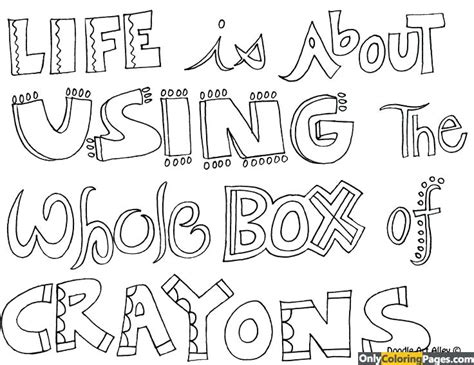 LIFE is About
USING The
Whole BOX of
CRAYONS
Doodle Art Alley ©
OnlyColoringPages.com